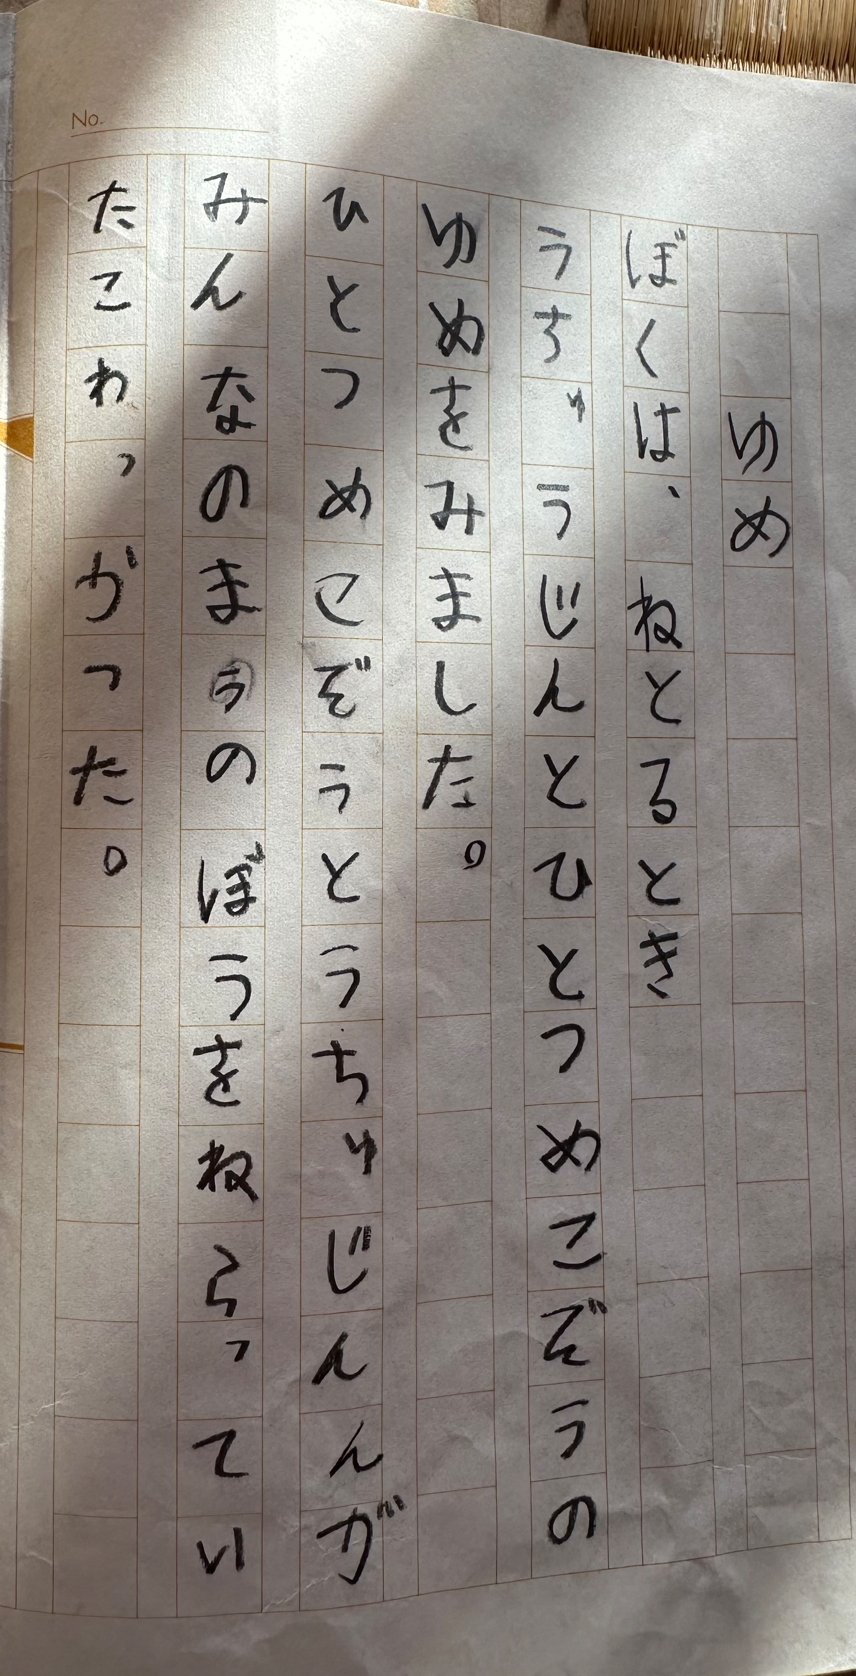 No.
ゆめ
ぼくは、ねとるとき
うちゅうじんとひとつめこぞうの
ゆめをみました。
ひとつめこぞうとうちゅじんんが
みんなのまうのぼうをねらってい
たこわっがった。